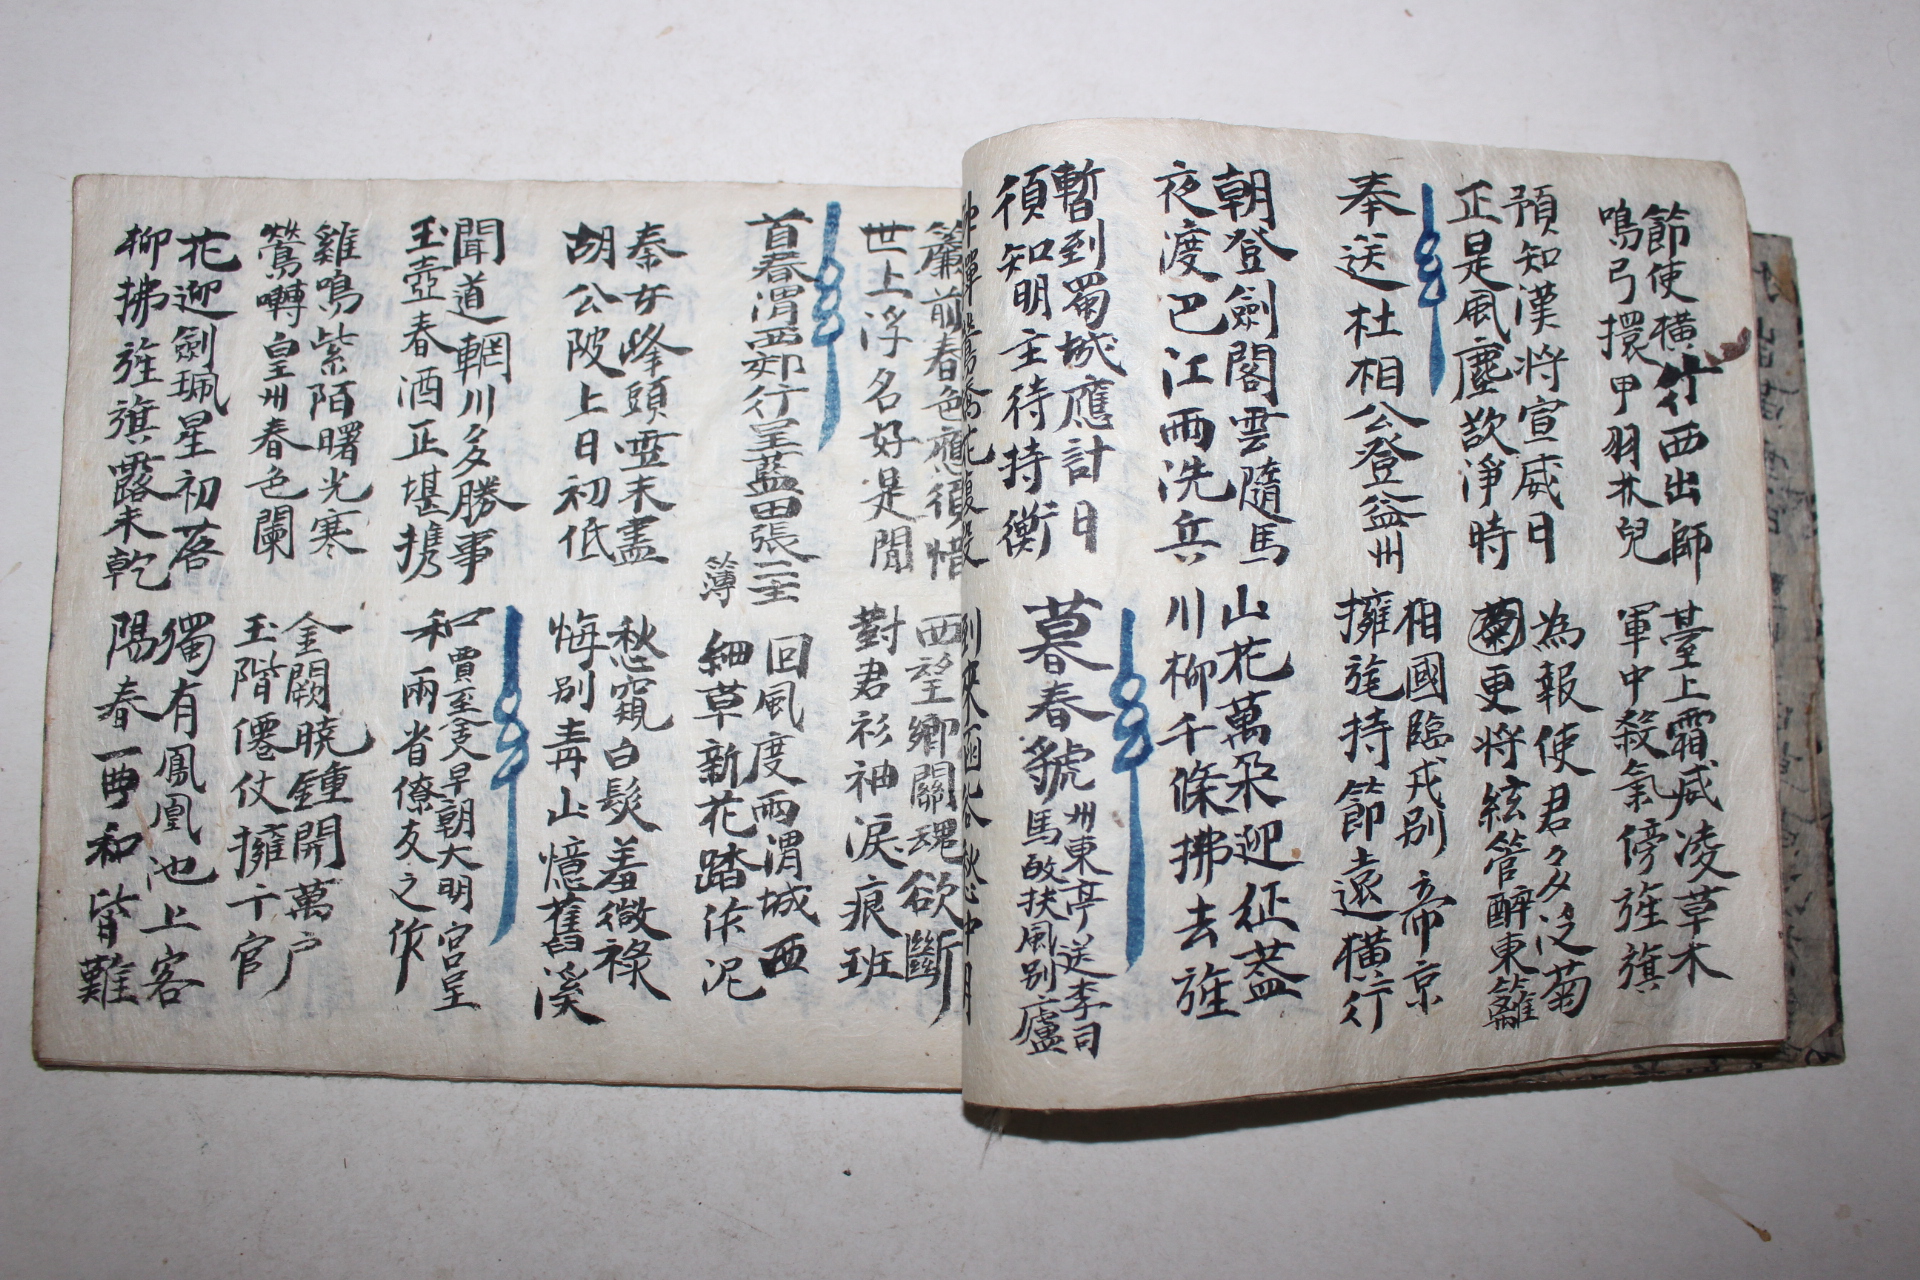 節使橫行西出師
鳴弓擐甲羽林兒
臺上霜威凌草木
軍中殺氣傍旌旗
預知漢將宣威日
正是風塵欲淨時
為報使君多泛菊
菊更將絃管醉東籬
奉送杜相公登益州
相國臨戎別帝京
擁旄持節遠橫行
朝登劍閣雲隨馬
夜渡巴江雨洗兵
山花萬朶迎征蓋
川柳千條拂去旌
暫到蜀城應計日
須知明主待持衡
暮春虢州東亭送李司馬改扶風別廬
簾前春色應須惜
世上浮名好是閒
西望鄉關魂欲斷
對君衫袖淚痕班
首春渭西郊行呈藍田張二主簿
回風度雨渭城西
細草新花踏作泥
秦女峰頭雪未盡
胡公陂上日初低
愁窺白髮羞微祿
悔別青山憶舊溪
聞道輞川多勝事
玉壺春酒正堪携
和賈至舍人早朝大明宮呈兩省僚友之作
雞鳴紫陌曙光寒
鶯囀皇州春色闌
金闕曉鍾開萬戶
玉階僊仗擁千官
花迎劍珮星初落
柳拂旌旗露未乾
獨有鳳凰池上客
陽春一曲和皆難